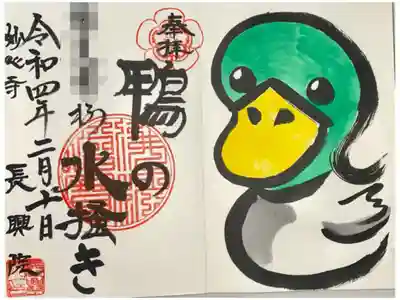 奉拝
鴨の水掻き
様
令和四年二月十日
妙心寺
長興院